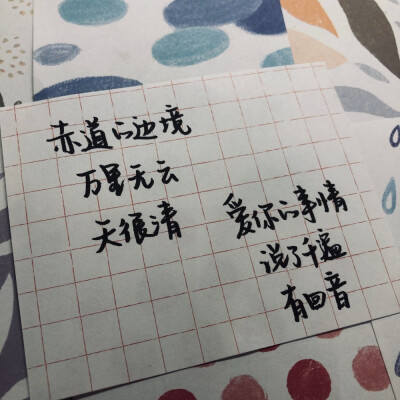 赤道的边境
万里无云
天很清
爱你的事情
说了千遍
有回音